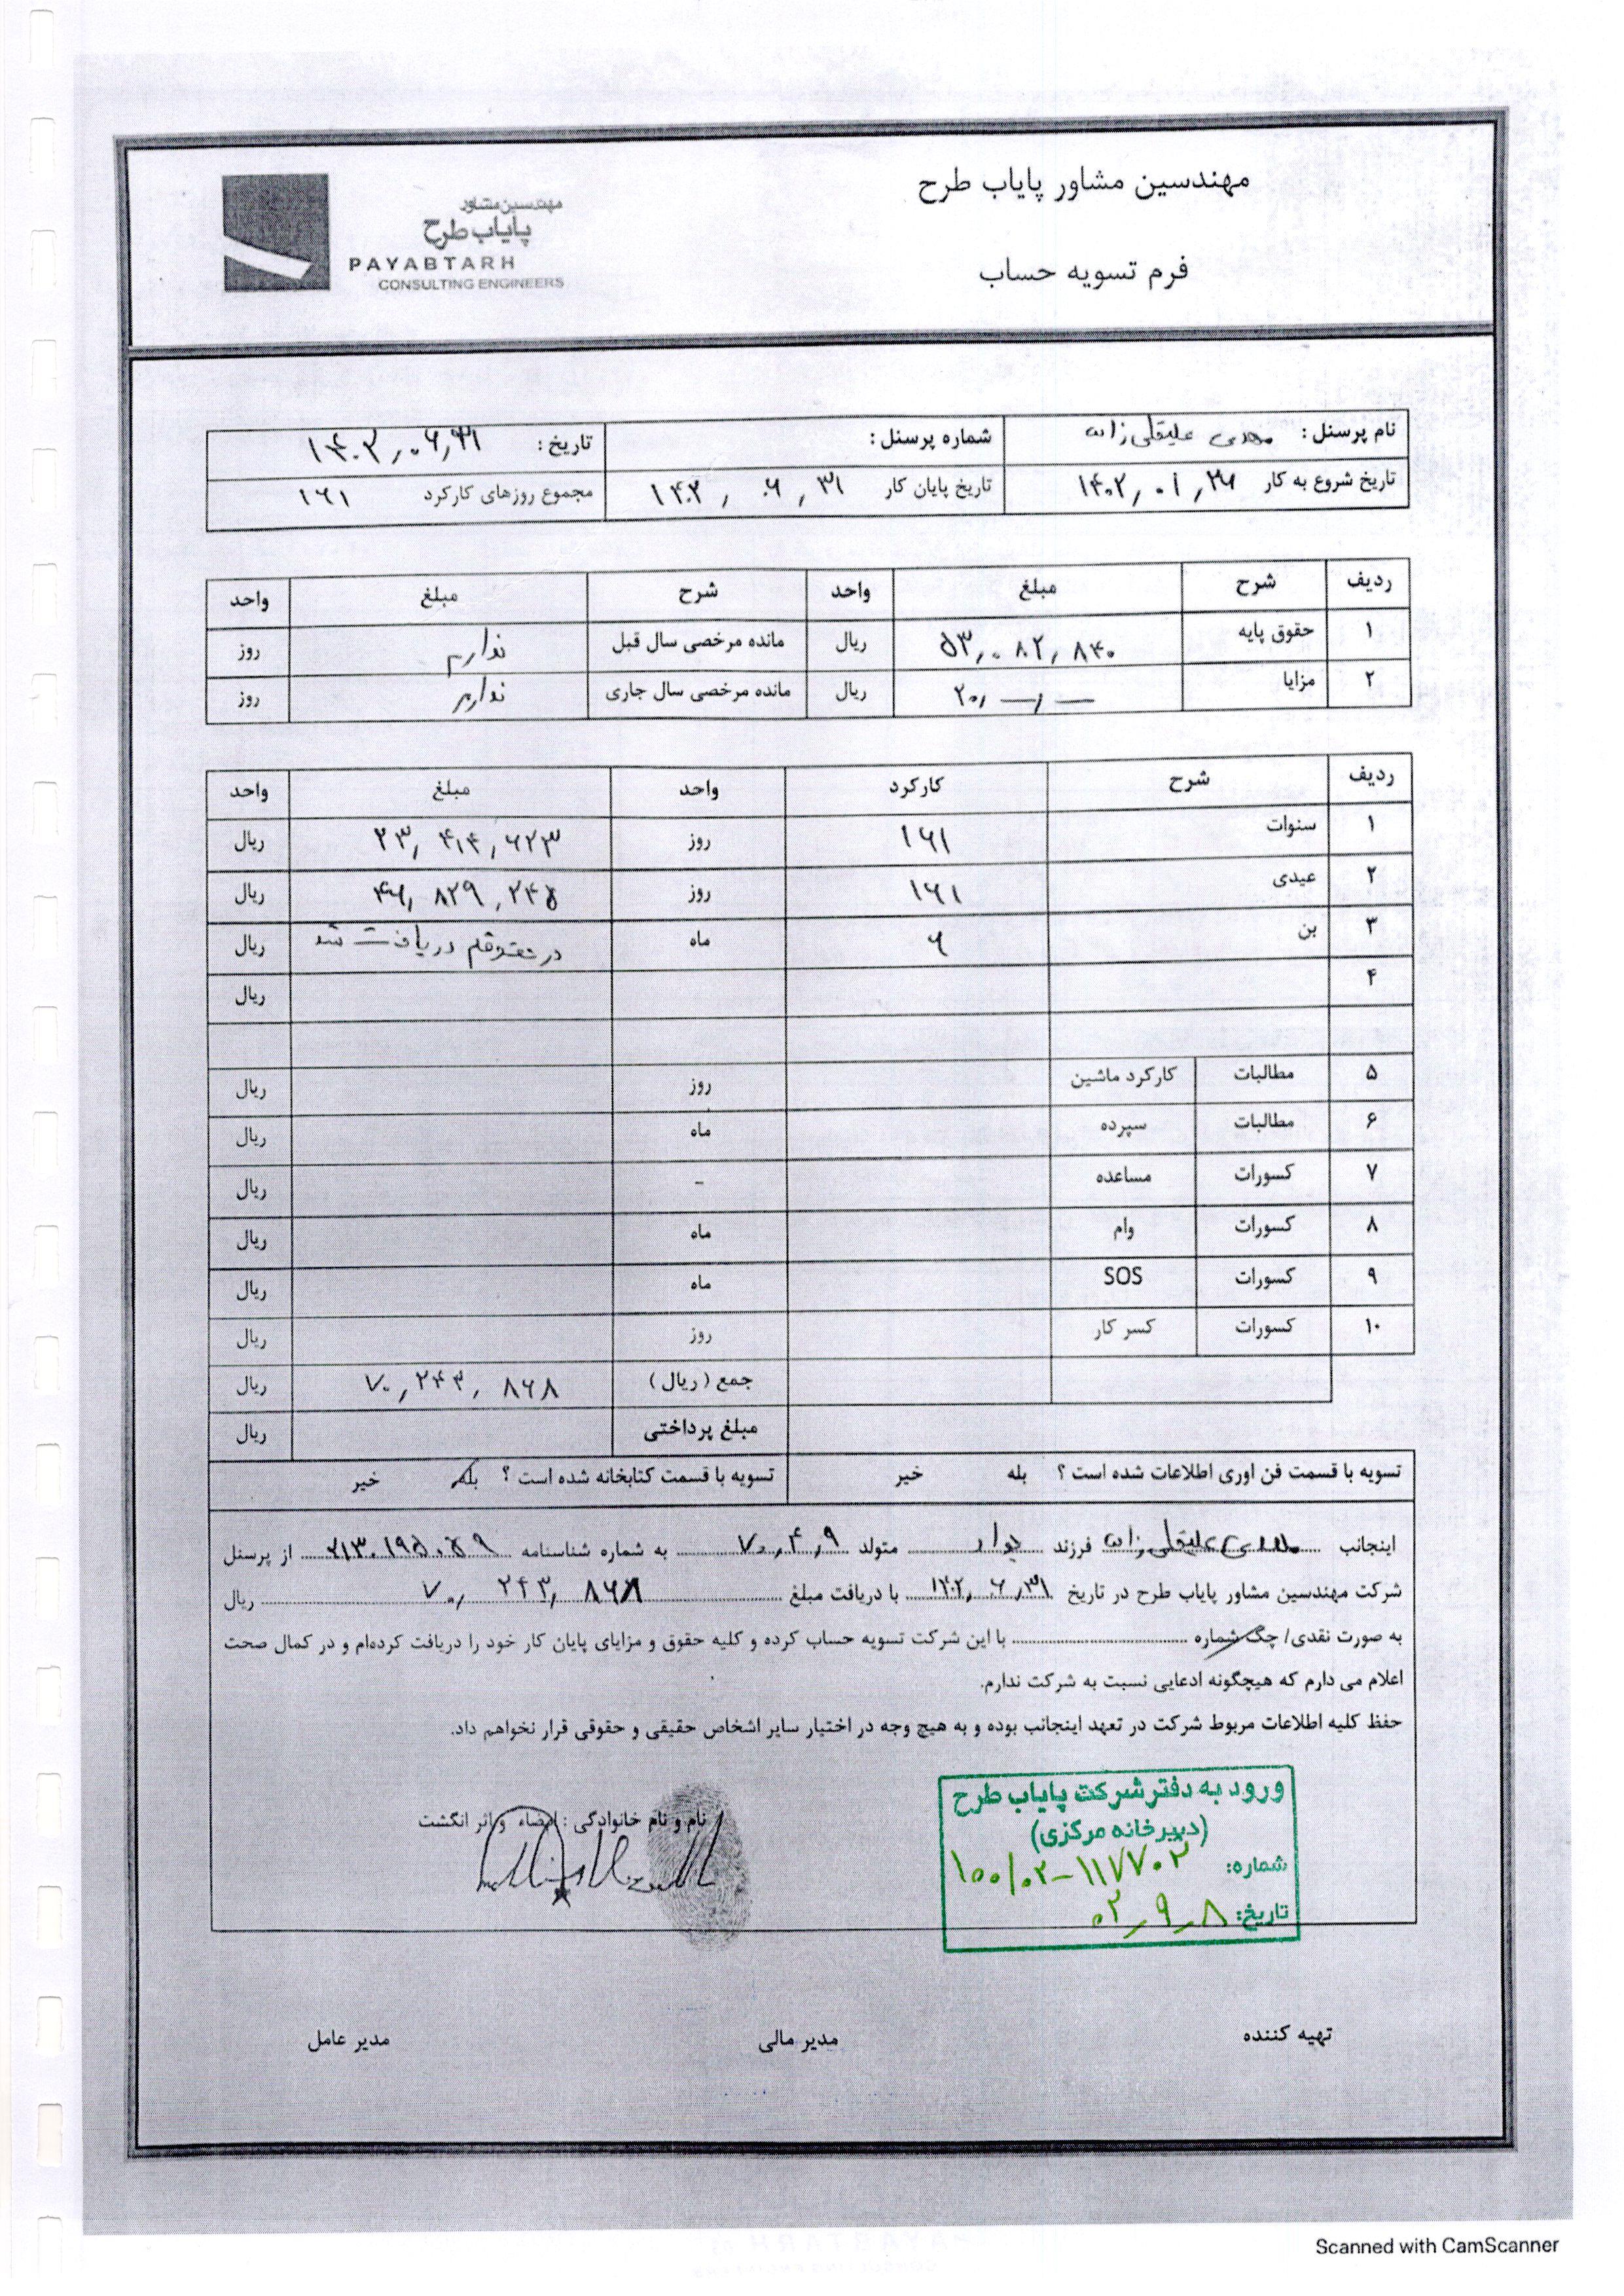 مهندسین مشاور پایاب طرح
فرم تسویه حساب
مهندسین مشاور
پایاب طرح
PAYABTARH
CONSULTING ENGINEERS
نام پرسنل : مهدی علیقلی زاده شماره پرسنل : تاریخ : ۱۴۰۲,۰۶,۳۱
تاریخ شروع به کار ۱۴۰۲,۰۱,۲۶ تاریخ پایان کار ۱۴۰۲,۰۶,۳۱ مجموع روزهای کارکرد ۱۶۱
ردیف شرح مبلغ واحد شرح مبلغ واحد
۱ حقوق پایه ۵۳,۰۸۲,۸۴۰ ریال مانده مرخصی سال قبل ندارم روز
۲ مزایا ۲۰,—,— ریال مانده مرخصی سال جاری ندارم روز
ردیف شرح کارکرد واحد مبلغ واحد
۱ سنوات ۱۶۱ روز ۲۳,۴۱۴,۶۲۳ ریال
۲ عیدی ۱۶۱ روز ۴۶,۸۲۹,۲۴۵ ریال
۳ بن ۶ ماه در حقوقم دریافت شد ریال
۴ ریال
۵ مطالبات کارکرد ماشین روز ریال
۶ مطالبات سپرده ماه ریال
۷ کسورات مساعده - ریال
۸ کسورات وام ماه ریال
۹ کسورات SOS ماه ریال
۱۰ کسورات کسر کار روز ریال
جمع (ریال) ۷۰,۲۴۳,۸۶۸ ریال
مبلغ پرداختی ریال
تسویه با قسمت فن اوری اطلاعات شده است ؟ بله خیر تسویه با قسمت کتابخانه شده است ؟ بله خیر
اینجانب مهدی علیقلی زاده فرزند متولد ۷۰,۴,۹ به شماره شناسنامه ۲۱۳۰۱۹۵۰۵۹ از پرسنل
شرکت مهندسین مشاور پایاب طرح در تاریخ ۱۴۰۲,۶,۳۱ با دریافت مبلغ ۷۰,۲۴۳,۸۶۸ ریال
به صورت نقدی/ چک شماره با این شرکت تسویه حساب کرده و کلیه حقوق و مزایای پایان کار خود را دریافت کرده‌ام و در کمال صحت
اعلام می دارم که هیچگونه ادعایی نسبت به شرکت ندارم.
حفظ کلیه اطلاعات مربوط شرکت در تعهد اینجانب بوده و به هیچ وجه در اختیار سایر اشخاص حقیقی و حقوقی قرار نخواهم داد.
نام و نام خانوادگی : امضاء و اثر انگشت
ورود به دفتر شرکت پایاب طرح
(دبیرخانه مرکزی)
شماره: ۱۰۰/۰۲-۱۱۷۷۰۲
تاریخ: ۰۲,۹,۸
تهیه کننده مدیر مالی مدیر عامل
Scanned with CamScanner